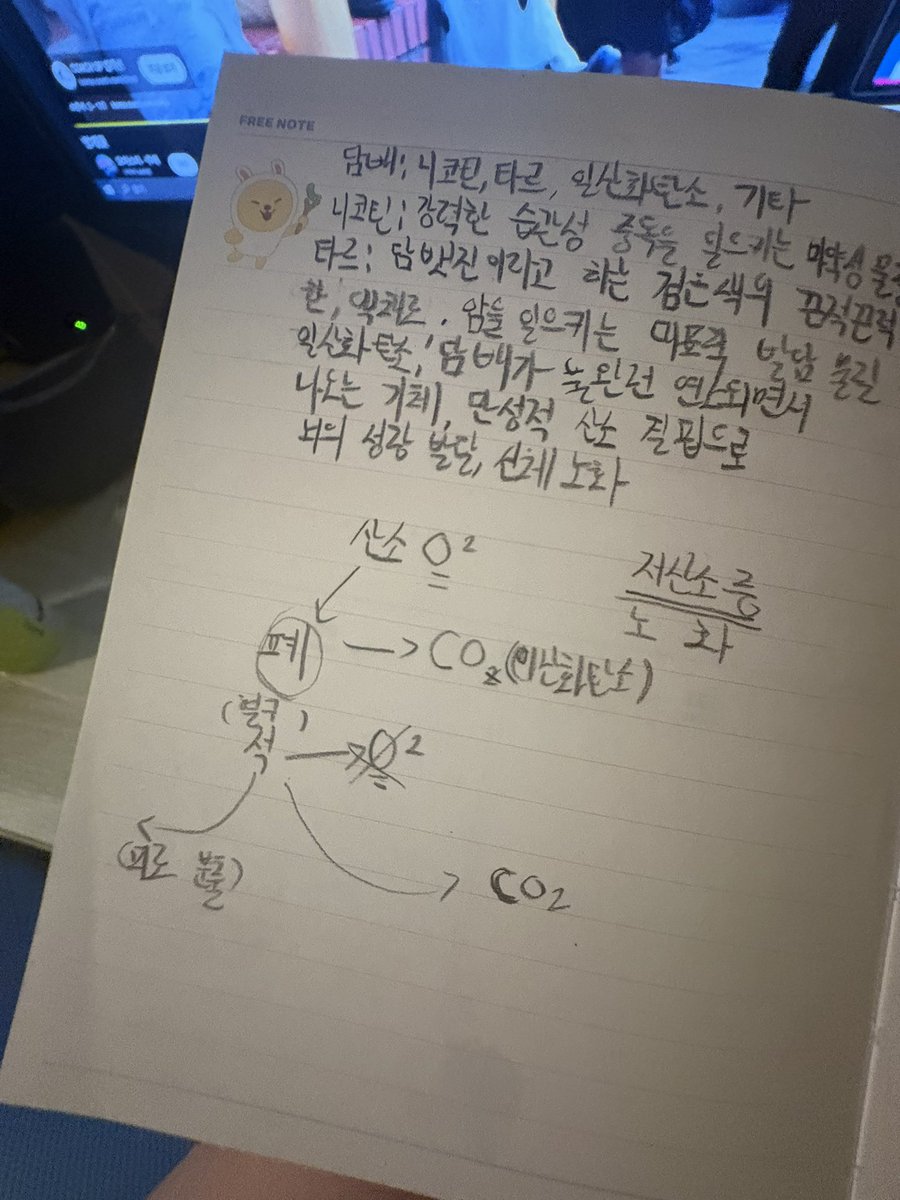 FREE NOTE
담배; 니코틴, 타르, 일산화탄소, 기타
니코틴; 강력한 습관성 중독을 일으키는 마약성 물질
타르; 담뱃진이라고 하는 검은색의 끈적끈적
한, 액체로. 암을 일으키는 대표적 발암 물질
일산화탄소; 담배가 불완전 연소되면서
나오는 기체, 만성적 산소 결핍으로
뇌의 성장 발달, 신체 노화
산소 O²
저산소증
노 화
폐 → CO₂ (이산화탄소)
(혈구)
적 → O²
(피로 물질)
CO₂